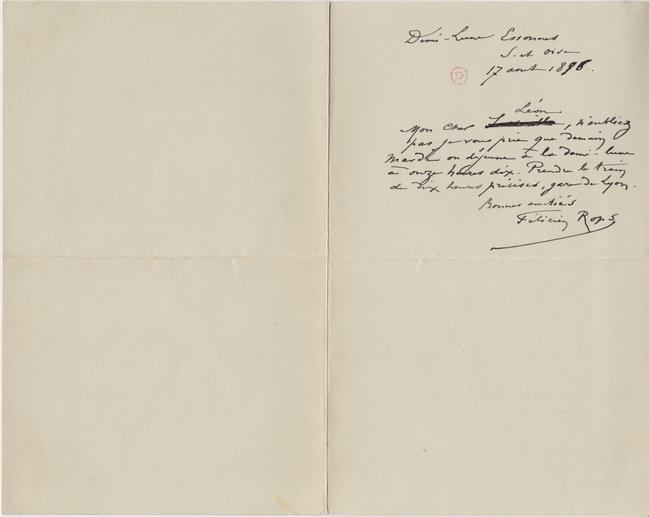 Demi-Lune Essonnes
S. et Oise
17 aout 1896.
Léon
Mon cher , n'oubliez
pas je vous prie que demain
Mardi on déjeune à la demi-lune
à onze heures dix. Prendre le train
de dix heures précises, gare de Lyon.
Bonnes amitiés
Félicien Rops